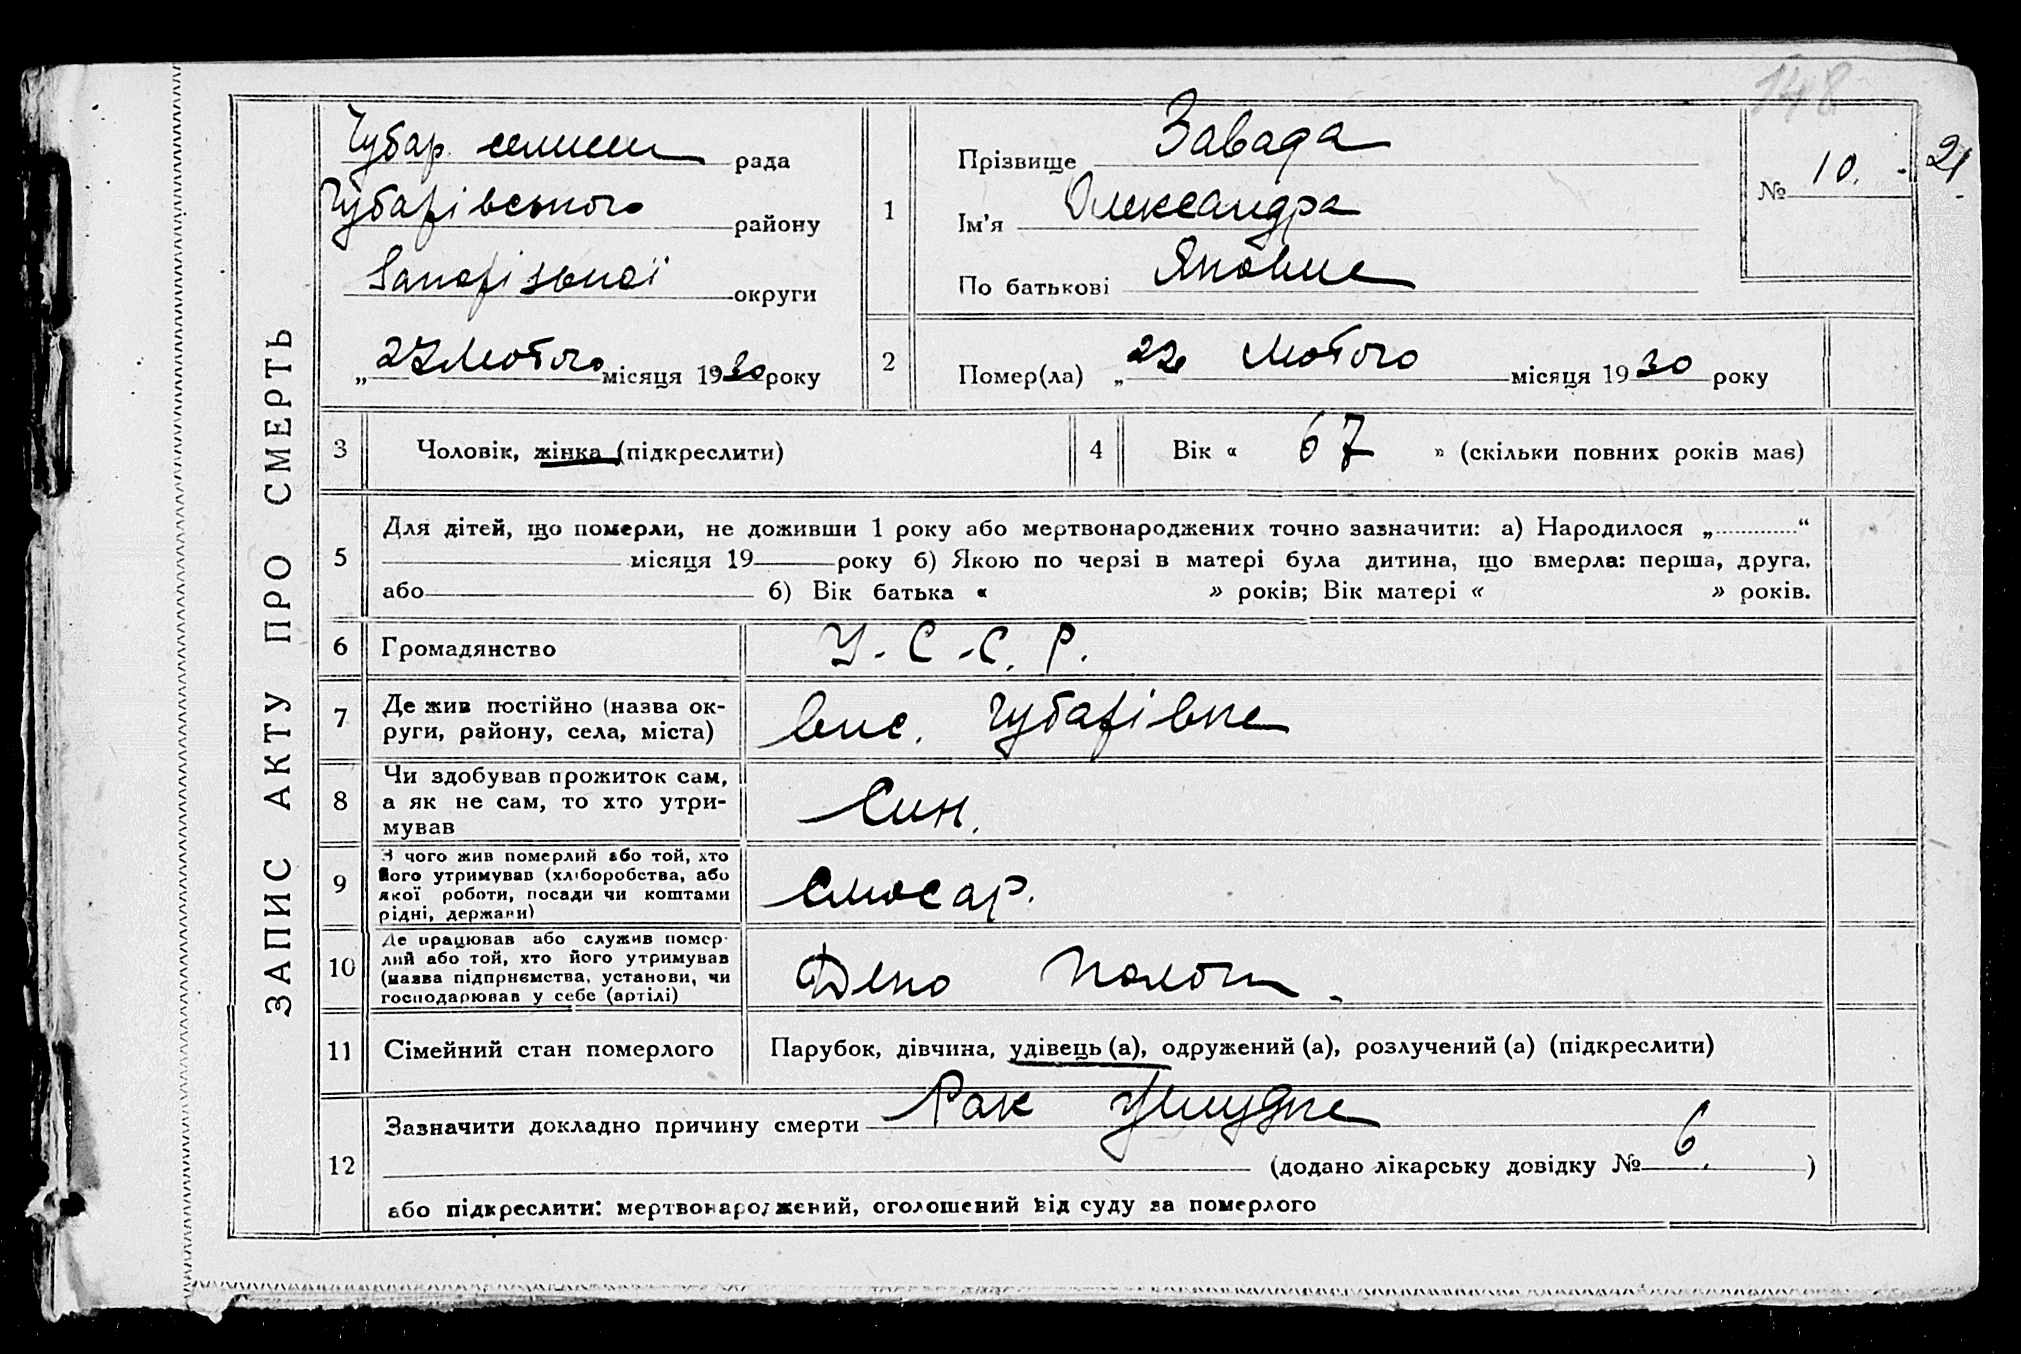 148
ЗАПИС АКТУ ПРО СМЕРТЬ
Чубар. селищн рада
Чубарівського району
Запорізької округи
„27 Лютого місяця 1930 року
1
Прізвище Завада
Ім'я Олександра
По батькові Яковна
№ 10. - 21
2
Помер(ла) „22 Лютого місяця 1930 року
3 Чоловік, жінка (підкреслити)
4 Вік « 67 » (скільки повних років мав)
5
Для дітей, що померли, не доживши 1 року або мертвонароджених точно зазначити: а) Народилося „ “
місяця 19 року б) Якою по черзі в матері була дитина, що вмерла: перша, друга,
або б) Вік батька « » років; Вік матері « » років.
6 Громадянство У.С.С.Р.
7 Де жив постійно (назва ок-
руги, району, села, міста)
вис. Чубарівка
8 Чи здобував прожиток сам,
а як не сам, то хто утри-
мував
Син.
9 З чого жив померлий або той, хто
його утримував (хліборобства, або
якої роботи, посади чи коштами
рідні, держави)
Слюсар.
10 Де працював або служив помер-
лий або той, хто його утримував
(назва підприємства, установи, чи
господарював у себе (артілі)
Депо Пологи.
11 Сімейний стан померлого Парубок, дівчина, удівець (а), одружений (а), розлучений (а) (підкреслити)
12
Зазначити докладно причину смерти Рак
(додано лікарську довідку № 6. )
або підкреслити: мертвонароджений, оголошений від суду за померлого